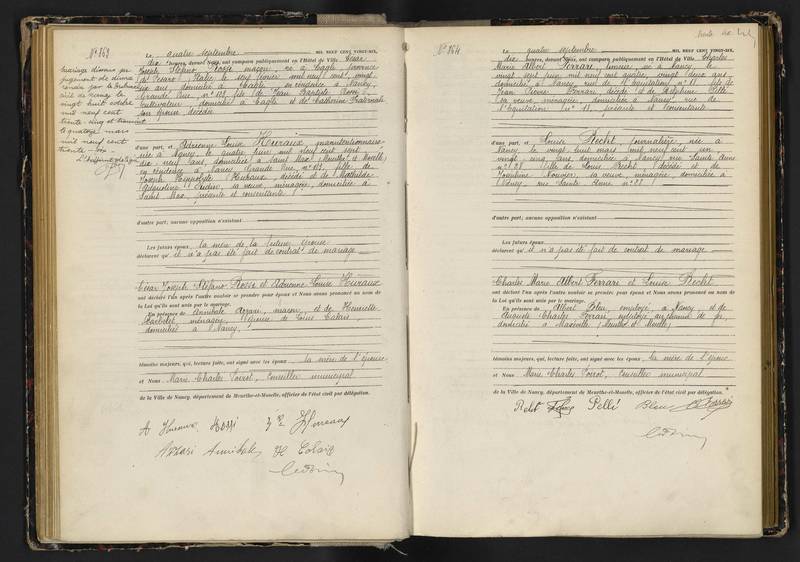 N° 863
Le quatre septembre MIL NEUF CENT VINGT-SIX,
dix heures, devant Nous, ont comparu publiquement en l'Hôtel de Ville César
Joseph Stefano Rossi maçon, né à Cagli province
de Pesaro Italie le
ans, domicilié à Cagli en résidence à Nancy,
Grande Rue, n° 113 fils de Jean Baptiste Rossi,
cultivateur domicilié à Cagli et de Catherine
son épouse décédée
mariage dissous par
jugement de divorce
rendu par le Tribunal
civil de Nancy le
vingt huit octobre
mil neuf cent
trente-cinq
le quatorze mars
mil neuf cent
trente-six
d'une part, et Adrienne Louise Huraux, manutentionnaire
née à Nancy, le quatre juin mil neuf cent sept
dix neuf ans, domiciliée à Saint Max (Meurthe et Moselle)
en résidence à Nancy Grande Rue, n° 113 fille de
Joseph Hippolyte Huraux, décédé et de Mathilde
sa veuve, ménagère, domiciliée à
Saint Max, présente et consentante
d'autre part; aucune opposition n'existant
Les futurs époux, la mère de la future épouse
déclarent qu'il n'a pas été fait de contrat de mariage
César Joseph Stefano Rossi et Adrienne Louise Huraux
ont déclaré l'un après l'autre vouloir se prendre pour époux et Nous avons prononcé au nom de
la Loi qu'ils sont unis par le mariage.
En présence de Annibale Azzari, maçon, et de Henriette
ménagère, épouse de Louis Colais
domiciliés à Nancy,
témoins majeurs, qui, lecture faite, ont signé avec les époux, la mère de l'épouse
et Nous Marie Charles Voirot, Conseiller municipal
de la Ville de Nancy, département de Meurthe-et-Moselle, officier de l'état civil par délégation.
A Huraux Rossi Huraux
Azzari Annibale H Colais
N° 864
Le quatre septembre MIL NEUF CENT VINGT-SIX,
dix heures, devant Nous, ont comparu publiquement en l'Hôtel de Ville Charles
Marie Albert Ferrari, né à Nancy, le
vingt sept juin mil neuf cent quatre, vingt deux ans
domicilié à Nancy rue de l'Equitation n° 11 fils de
Jean Ferrari, décédé et de Delphine Pelli
sa veuve ménagère, domiciliée à Nancy rue de
l'Equitation n° 11, présente et consentante
d'une part, et Louise Becht, journalière née à
Nancy le vingt huit mars mil neuf cent un
vingt cinq ans domiciliée à Nancy rue Sainte Anne
n° 28 fille de Louis Becht décédé et de
Joséphine sa veuve, ménagère, domiciliée à
Nancy rue Sainte Anne n° 28
d'autre part; aucune opposition n'existant
Les futurs époux
déclarent qu'il n'a pas été fait de contrat de mariage
Charles Marie Albert Ferrari et Louise Becht
ont déclaré l'un après l'autre vouloir se prendre pour époux et Nous avons prononcé au nom de
la Loi qu'ils sont unis par le mariage.
En présence de Albert Bleu, employé à Nancy et de
Claude Charles Ferrari, employé au chemin de fer
domicilié à Maxéville (Meurthe et Moselle)
témoins majeurs, qui, lecture faite, ont signé avec les époux, la mère de l'époux
et Nous Marie Charles Voirot, Conseiller municipal
de la Ville de Nancy, département de Meurthe-et-Moselle, officier de l'état civil par délégation.
Pelli Bleu